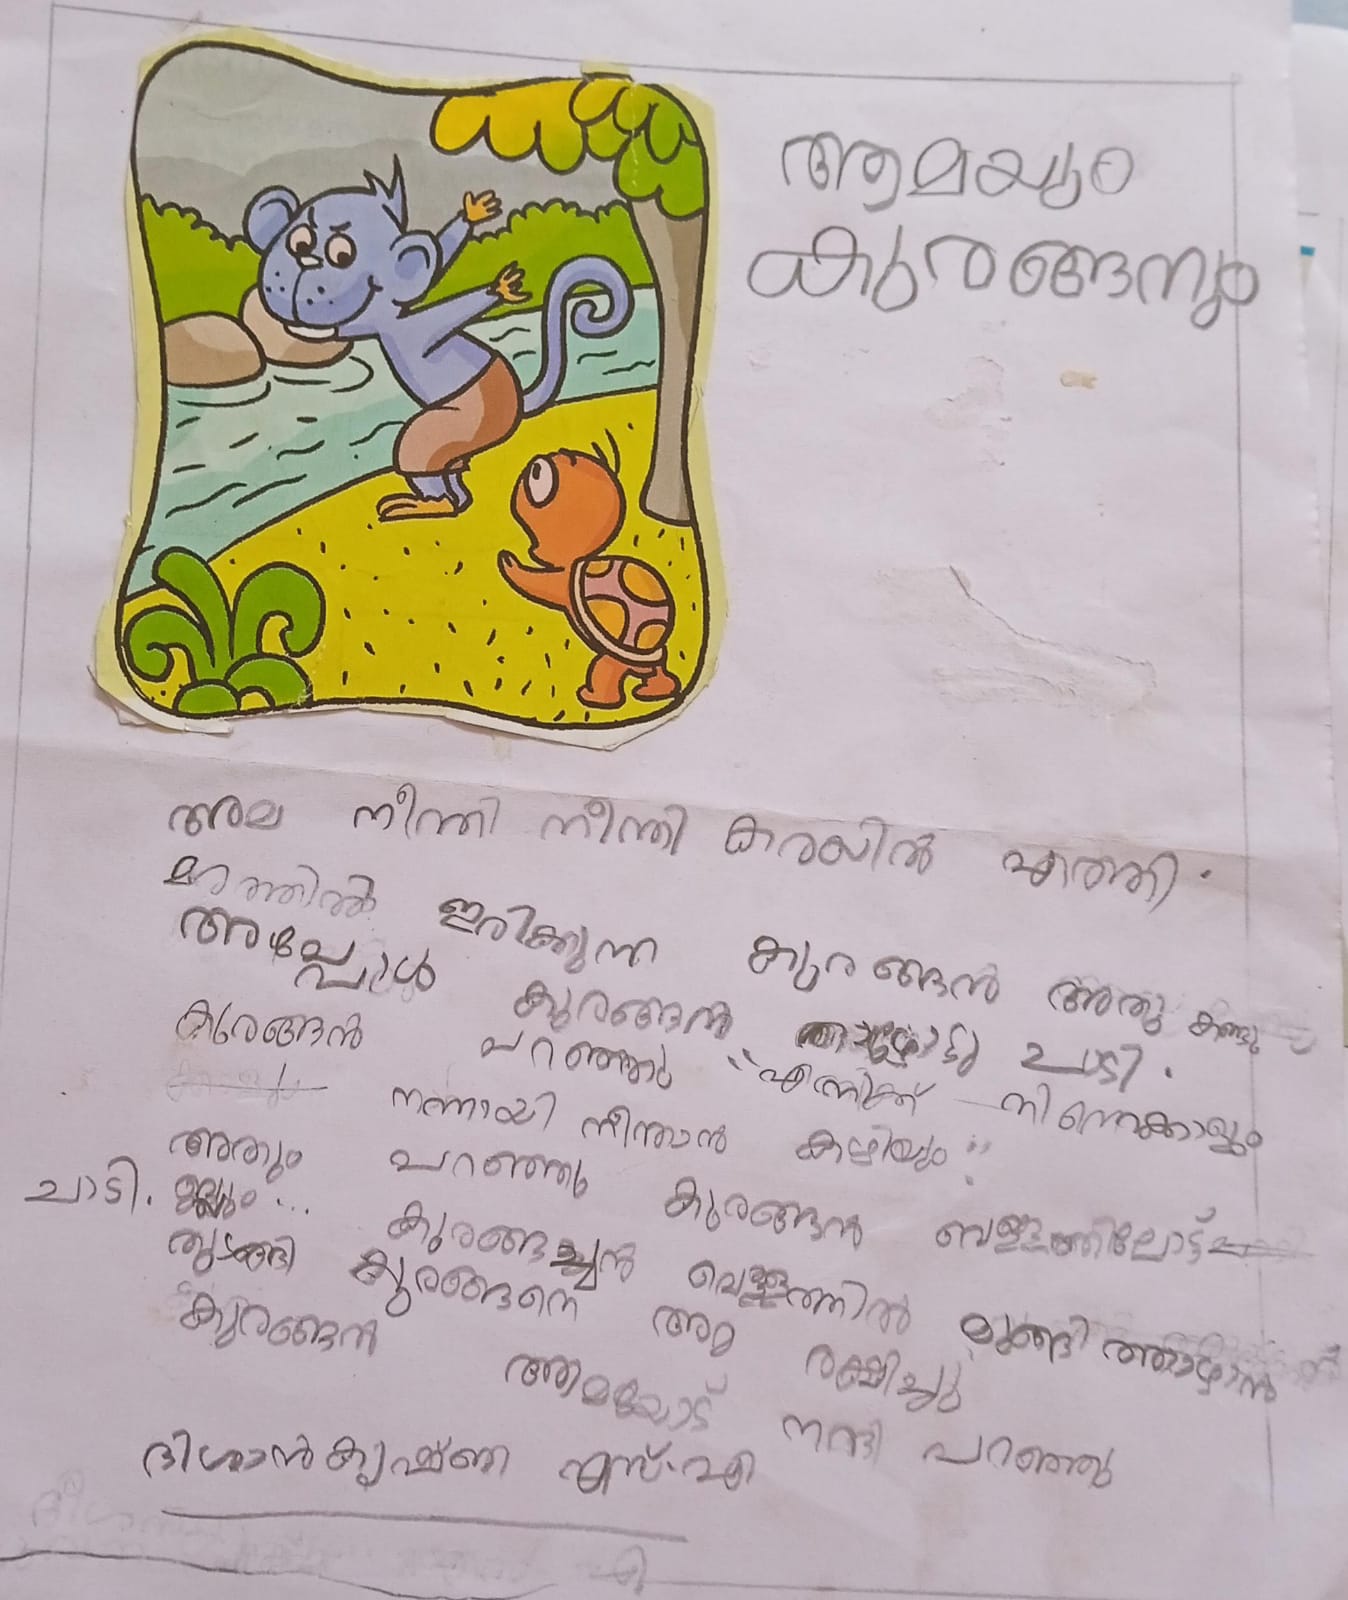 ആമയും
കുരങ്ങനും
അല നീന്തി നീന്തി കരയിൽ എത്തി.
മരത്തിൽ ഇരിക്കുന്ന കുരങ്ങൻ അതു കണ്ടു
അപ്പോൾ കുരങ്ങൻ താഴോട്ടു ചാടി.
കുരങ്ങൻ പറഞ്ഞു "എനിക്ക് നിന്നെക്കാളും
നന്നായി നീന്താൻ കഴിയും"
അതും പറഞ്ഞു കുരങ്ങൻ ബള്ളത്തിലോട്ട്
ചാടി. ബ്ലും... കുരങ്ങച്ചൻ വെള്ളത്തിൽ മുങ്ങിത്താഴാൻ
തുടങ്ങി കുരങ്ങനെ അമ രക്ഷിച്ചു
കുരങ്ങൻ ആമയോട് നന്ദി പറഞ്ഞു
ദിശാൻകൃഷ്ണ എസ്.എ